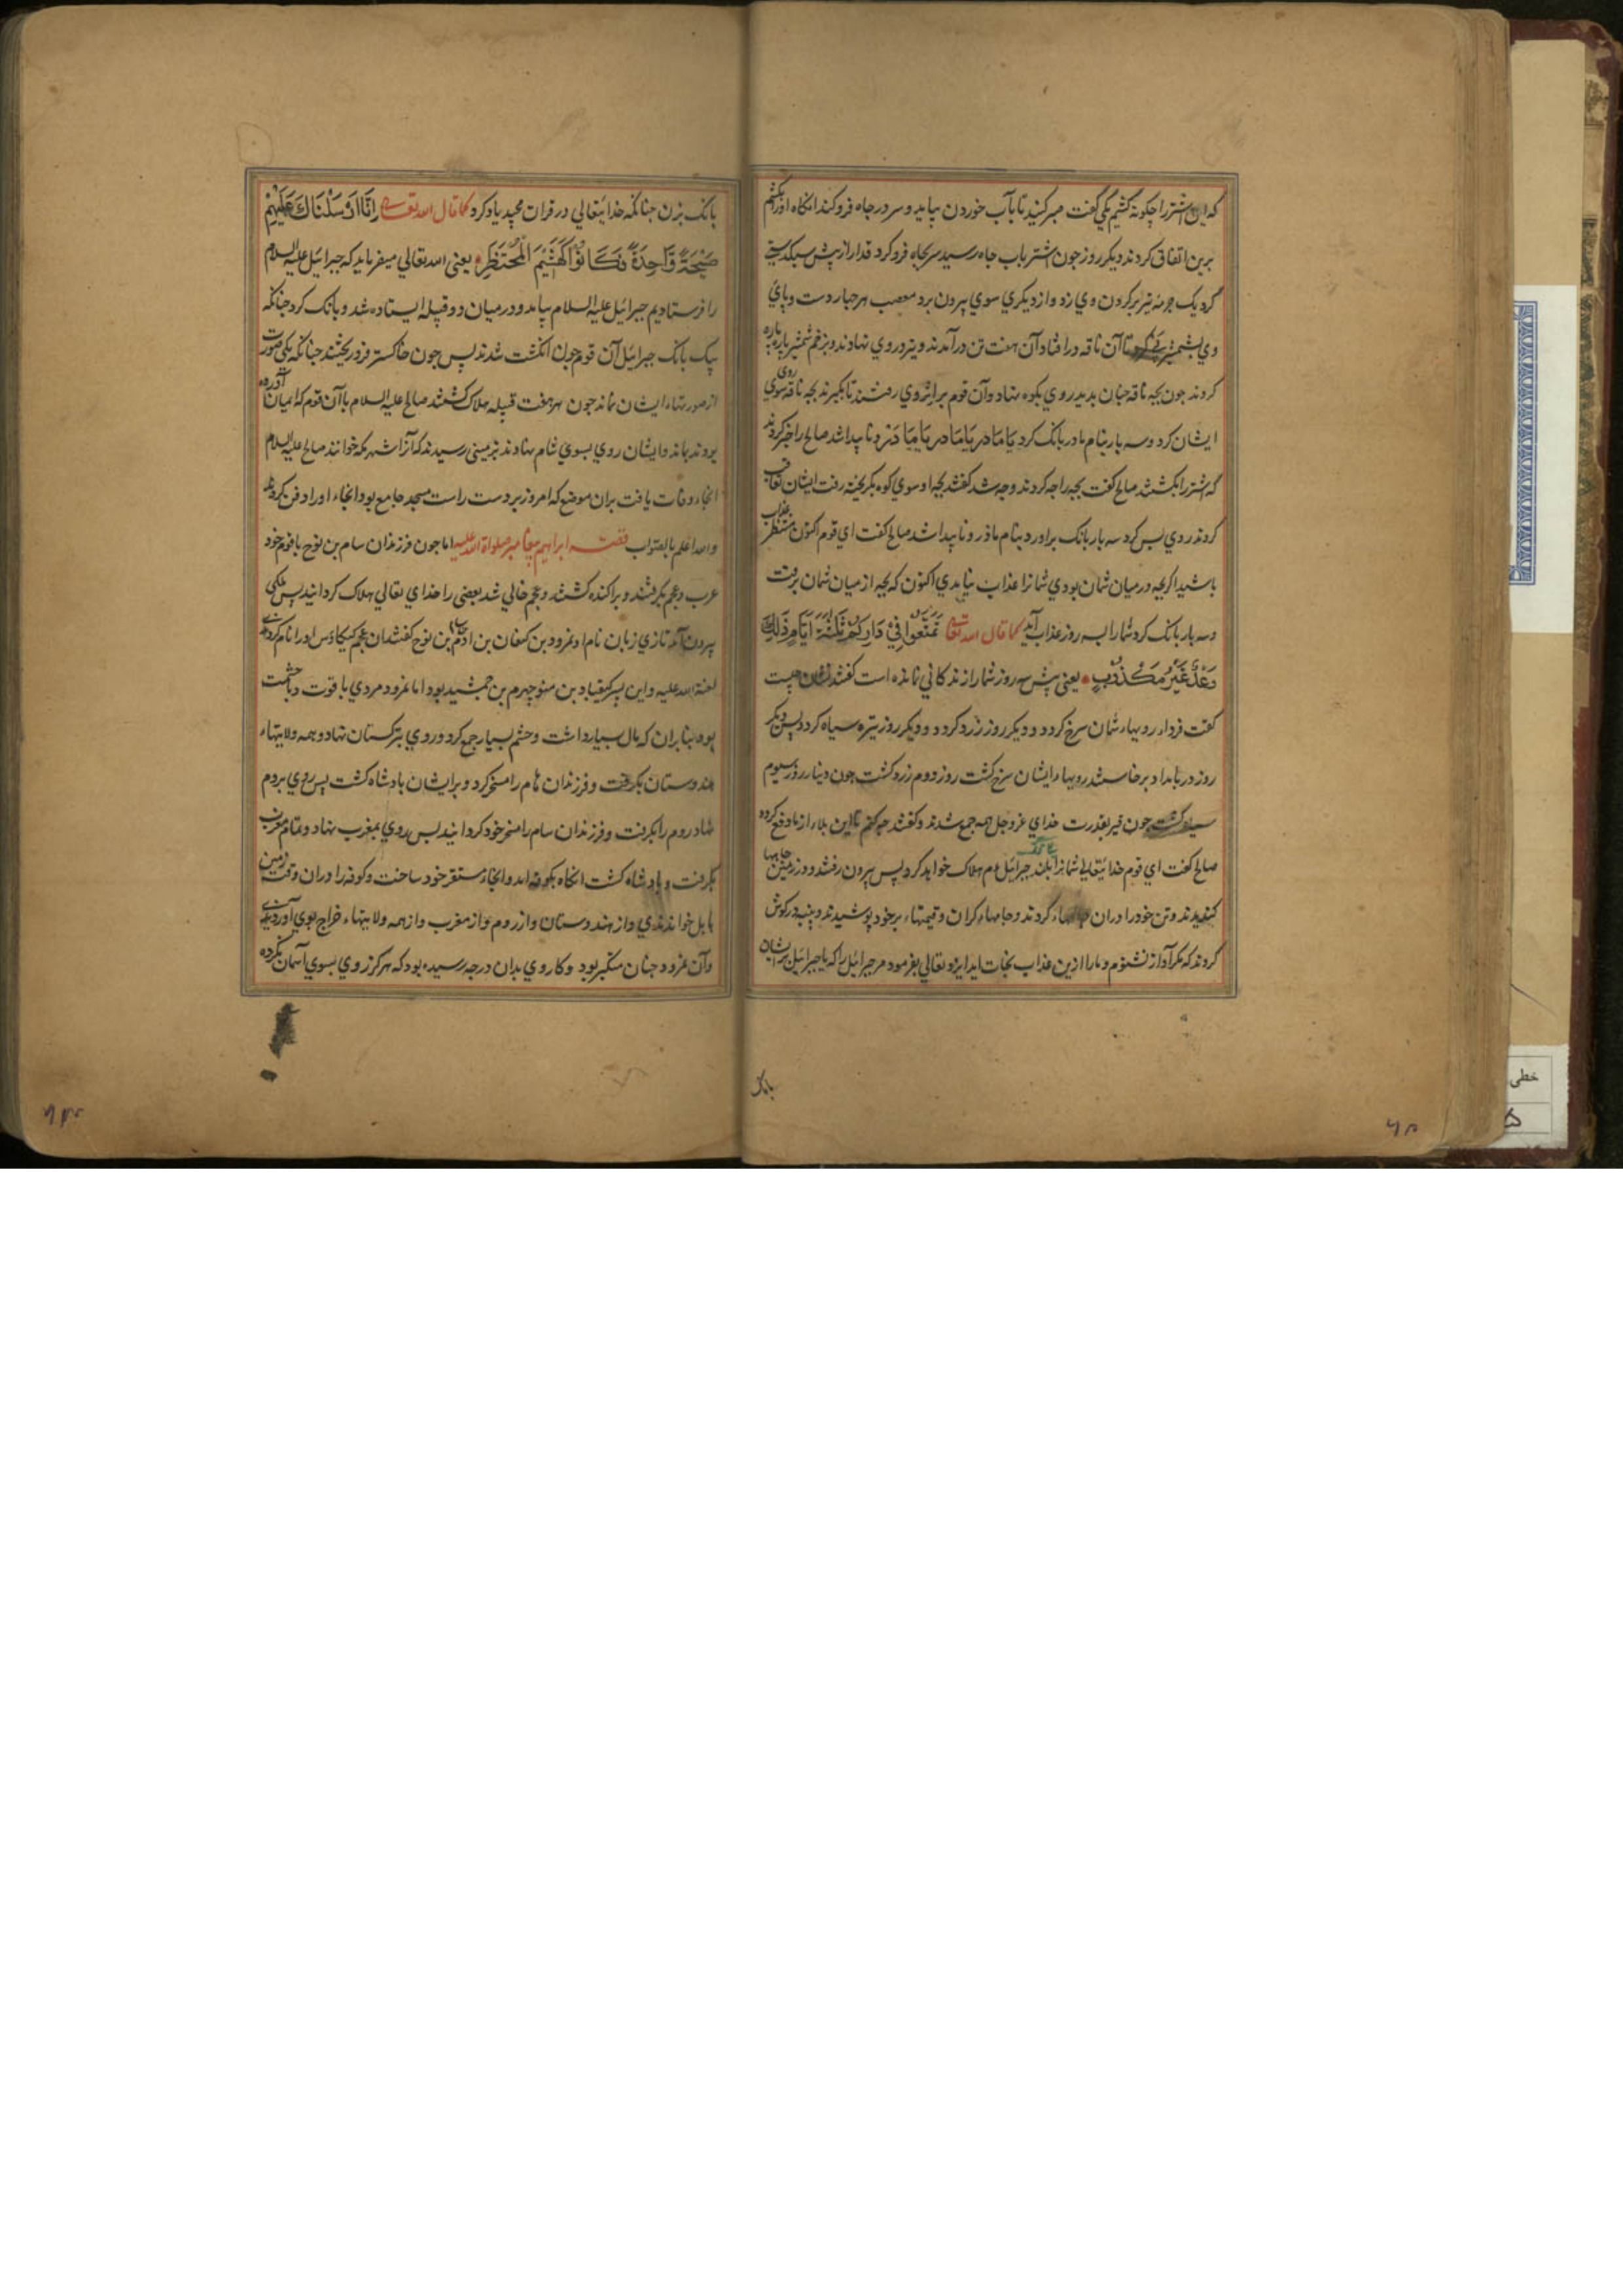 که این اشتر را چکونه کشیم یکی کفت صبر کنید تا بآب خوردن بیاید و سر در جاه فرو کند انکاه اورا بکشیم
برین اتفاق کردند دیکر روز جون اشتر باب جاه رسید سر بجاه فرو کرد قدار از پیش سبکدستی
کرد یک جربه تیر بر کردن وی زد و از دیکری سوی بیرون برد مصب هر جهار دست و پای
وی بشمشیر پی کرد تا آن ناقه در افتاد آن هفت تن در آمدند و تیر در وی نهادند و بزخم شمشیر پاره پاره
کردند جون بجه ناقه جنان بدید روی بکوه نهاد و آن قوم بر اثر وی رفتند تا بکیرند بجه ناقه روی سوی
ایشان کرد و سه بار بنام مادر بانک کرد یامادر یامادر یامادر و ناپیدا شد صالح را خبر کردند
که اشتر را بکشتند صالح کفت بجه را جه کردند و جه شد کفتند بجه او سوی کوه بکریخته رفت ایشان تعاقب
کردند روی پس کرد سه بار بانک براورد بنام مادر و ناپیدا شد صالح کفت ای قوم اکنون منتظر عذاب
باشید اکر بجه در میان شمان بودی شما را عذاب نیامدی اکنون که بجه از میان شمان برفت
و سه بار بانک کرد شما را به سه روز عذاب آید کما قال الله تعالی تمتعوا فی دارکم ثلثة ایام ذلک
وعد غیر مکذوب یعنی بیش سه روز شما را زندکانی نمانده است کفتند نشان چیست
کفت فردا رویهاء شمان سرخ کردد و دیکر روز زرد کردد و دیکر روز تیره سیاه کردد پس دیکر
روز در بامداد برخاستند رویهاء ایشان سرخ کشت روز دوم زرد کشت جون دینار روز سیوم
سیاه کشت جون قیر بقدرت خدای عز و جل همه جمع شدند و کفتند جه کنم تا این بلاء از ما دفع کردد
صالح کفت ای قوم خدایتعالی شما را ببانک بلند جبرائیل ع م هلاک خواهد کرد پس بیرون رفتند و در زمین جایها
کنیدند و تن خود را در ان جایهاء کردند و جامهاء کران و قیمتهاء بر خود پوشیدند و پنبه در کوش
کردند که مکر آواز نشنوم و مارا ازین عذاب نجات اید ایزد تعالی بفرمود مر جبرائیل را که یا جبرائیل بر ایشان
بانک
بانک بزن جنانکه خدایتعالی در قران مجید یاد کرد کما قال الله تعالی انا ارسلناک علیهم
صیحة واحدة فکانوا کهشیم المحتظر یعنی الله تعالی میفرماید که جبرائیل علیه السلام
را فرستادیم جبرائیل علیه السلام بیامد و در میان دو قبیله ایستاده شد و بانک کرد جنانکه
بیک بانک جبرائیل آن قوم جون انکشت شدند پس جون خاکستر فرو ریختند جنانکه یکی صورت
از صورتهاء ایشان نماند جون هر هفت قبیله هلاک کشتند صالح علیه السلام با آن قوم که ایمان آورده
بودند بماند و ایشان روی بسوی شام نهادند بزمینی رسیدند که آنرا شهر مکه خوانند صالح علیه السلام
انجاء وفات یافت بران موضع که امروز بر دست راست مسجد جامع بود انجاء اورا دفن کردند
والله اعلم بالصواب قصه ابراهیم پیغامبر صلواة الله علیه اما جون فرزندان سام بن نوح با قوم خود
عرب و عجم بکرفتند و پراکنده کشتند و عجم خالی شد بعضی را خدای تعالی هلاک کردانید پس ملکی
بیرون آمد تازی زبان نام او نمرود بن کنعان بن ادم بن سام بن نوح کفتندان عجم کیکاوس اورا نام کردندی
لعنة الله علیه و این پسر کیقباد بن منوچهرم بن جمشید بود اما نمرود مردی با قوت و با حشمت
بود بنا بران که مال بسیار داشت و حشم بسیار جمع کرد و روی بترکستان نهاد و همه ولایتهاء
هندوستان بکرفت و فرزندان حام را مسخر کرد و بر ایشان بادشاه کشت پس روی بروم
نهاد روم را بکرفت و فرزندان سام را مسخر خود کردانید پس روی بمغرب نهاد و تمام مغرب
بکرفت و بادشاه کشت انکاه بکوفه امد و انجاء مستقر خود ساخت و کوفه را دران وقت زمین
بابل خواندندی و از هندوستان و از روم و از مغرب و از همه ولایتهاء خراج بوی آوردندی
و آن نمرود جنان متکبر بود و کار وی بدان درجه رسیده بود که هرکز روی بسوی آسمان نکرده
خطی